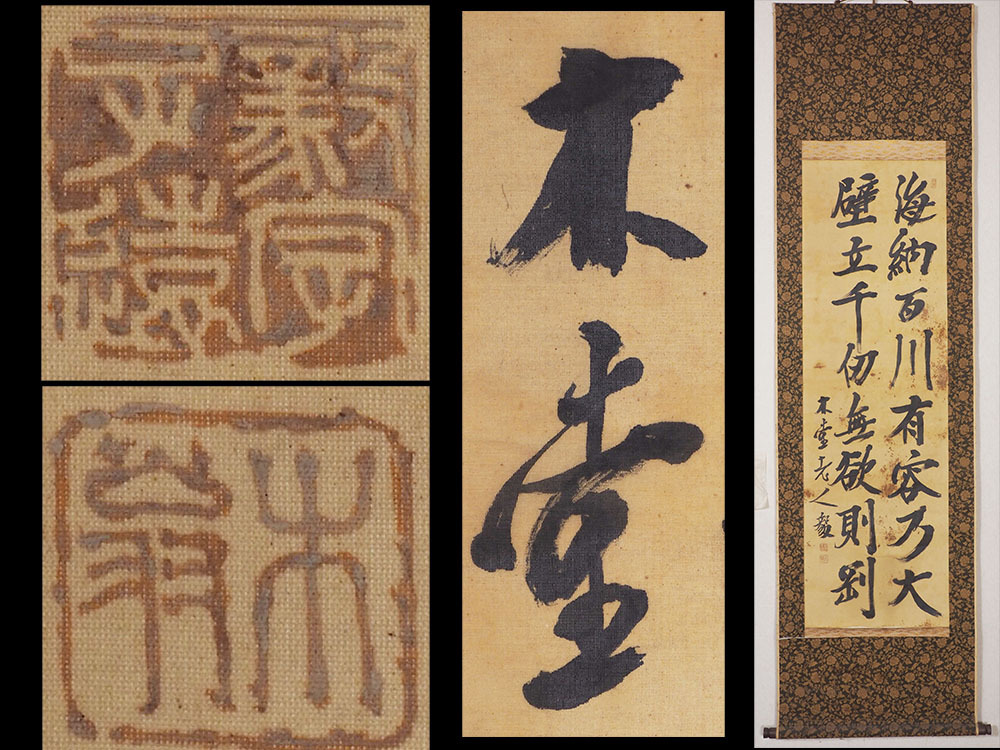 木翁
木堂
海納百川有容乃大
壁立千仞無欲則剛
木堂老人毅